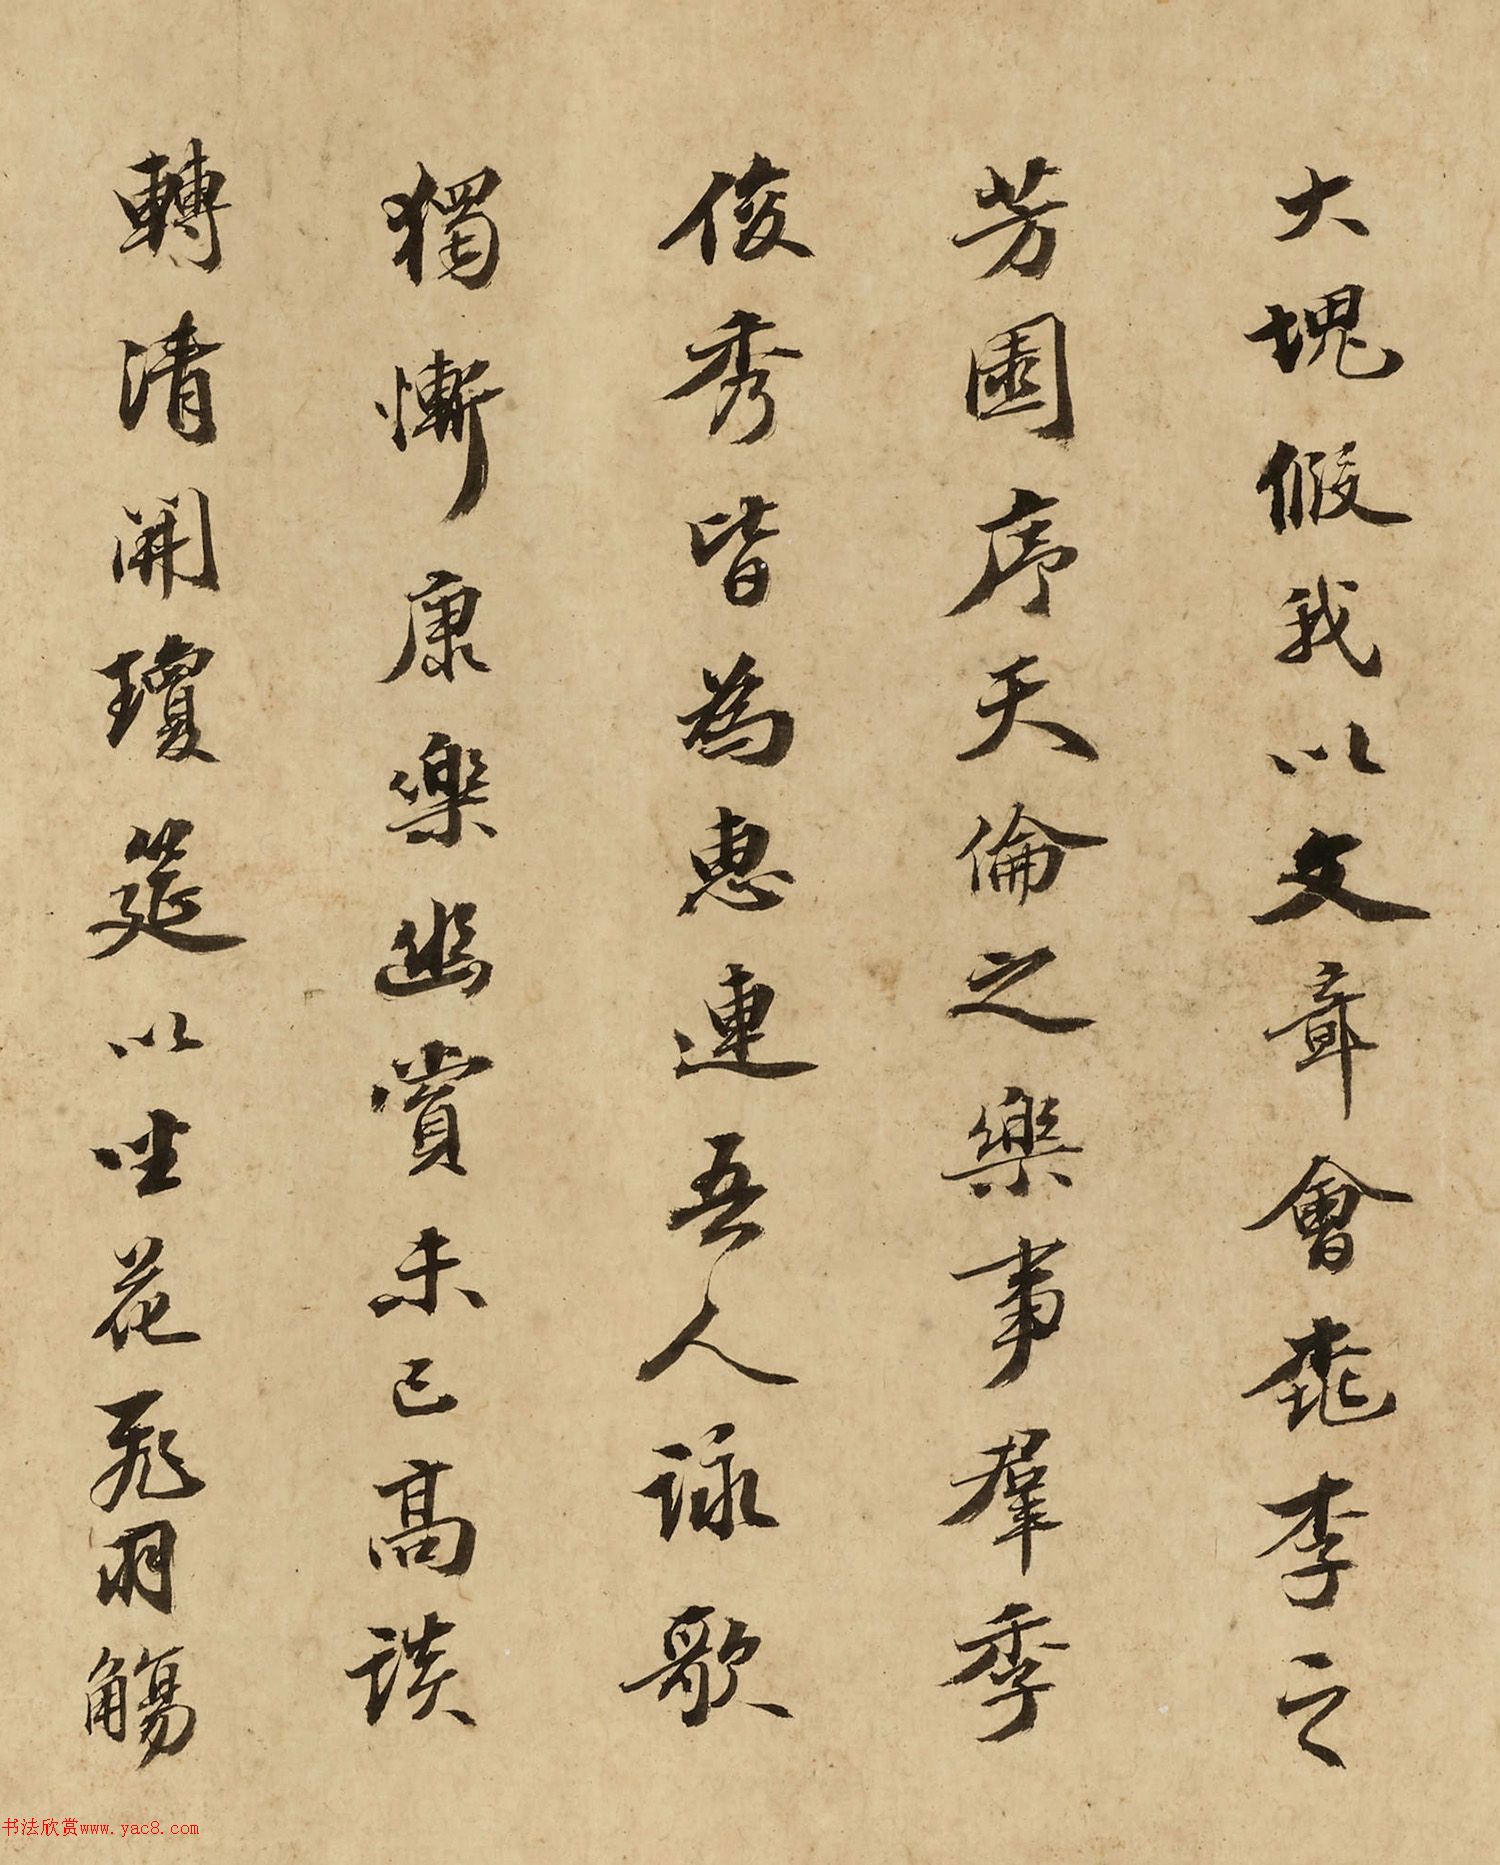 大塊假我以文章會桃李之
芳園序天倫之樂事羣季
俊秀皆為惠連吾人詠歌
獨慚康樂幽賞未已高談
轉清開瓊筵以坐花飛羽觴
书法欣赏www.yac8.com